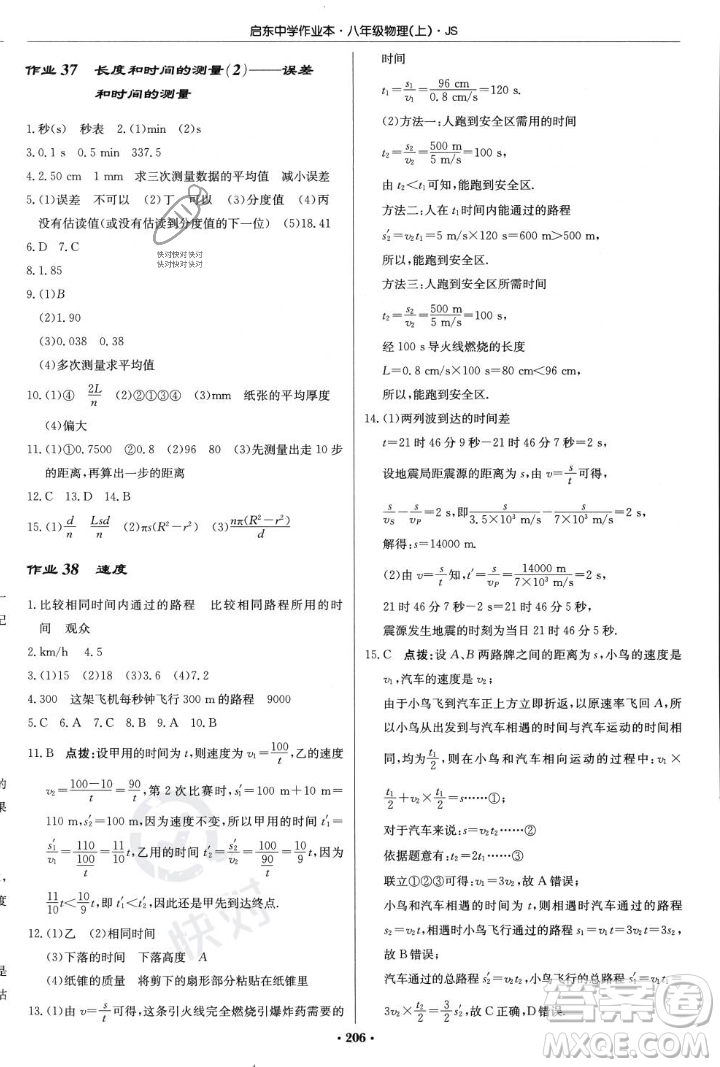 启东中学作业本·八年级物理(上)·JS
作业 37 长度和时间的测量(2)——误差
和时间的测量
1.秒(s) 秒表 2.(1)min (2)s
3.0.1 s 0.5 min 337.5
4.2.50 cm 1 mm 求三次测量数据的平均值 减小误差
5.(1)误差 不可以 (2)丁 可以 (3)分度值 (4)丙
没有估读值(或没有估读到分度值的下一位) (5)18.41
6.D 7.C
8.1.85
9.(1)B
(2)1.90
(3)0.038 0.38
(4)多次测量求平均值
10.(1)④ 2L/n (2)②①③④ (3)mm 纸张的平均厚度
(4)偏大
11.(1)①0.7500 ②0.8 (2)96 (3)80 (3)先测量出走 10 步
的距离,再算出一步的距离
12.C 13.D 14.B
15.(1)d/n Lsd/n (2)πs(R²−r²) (3)nπ(R²−r²)/d
作业 38 速度
1.比较相同时间内通过的路程 比较相同路程所用的时
间 观众
2.km/h 4.5
3.(1)15 (2)18 (3)12
4.300 这架飞机每秒钟飞行 300 m 的路程 9000
5.C 6.A 7.B 8.C 9.A 10.A
11.B 点拨:设甲用的时间为 t,则速度为 v₁=100/t,乙的速度
v₂=(100−10)/t=90/t,第 2 次比赛时,s′₁=100 m+10 m=
110 m,s′₂=100 m,因为速度不变,所以甲用的时间 t′₁=
s′₁/v₁=110/(100/t)=11/10 t,乙用的时间 t′₂=s′₂/v₂=100/(90/t)=10/9 t,因为
11/10 t<10/9 t,即 t′₁<t′₂,因此还是甲先到达终点.
12.(1)乙 (2)相同时间
(3)下落的时间 下落高度 A
(4)纸锥的质量 将剪下的扇形部分粘贴在纸锥里
13.(1)由 v=s/t 可得,这条引火线完全燃烧引爆炸药需要的
时间
t₁=s₁/v₁=96 cm/0.8 cm/s=120 s.
(2)方法一:人跑到安全区需用的时间
t₂=s₂/v₂=500 m/5 m/s=100 s,
由 t₂<t₁可知,能跑到安全区.
方法二:人在 t₁时间内能通过的路程
s′₂=v₂t₁=5 m/s×120 s=600 m>500 m,
所以,能跑到安全区.
方法三:人跑到安全区所需时间
t₂=s₂/v₂=500 m/5 m/s=100 s,
经 100 s 导火线燃烧的长度
L=0.8 cm/s×100 s=80 cm<96 cm,
所以,能跑到安全区.
14.(1)两列波到达的时间差
t=21 时 46 分 9 秒−21 时 46 分 7 秒=2 s,
设地震局距震源的距离为 s,由 v=s/t可得,
s/vS−s/vP=2 s,即s/3.5×10³ m/s−s/7×10³ m/s=2 s,
解得:s=14000 m.
(2)由 v=s/t知,t′=s/vP=14000 m/7×10³ m/s=2 s,
21 时 46 分 7 秒−2 秒=21 时 46 分 5 秒,
震源发生地震的时刻为当日 21 时 46 分 5 秒.
15.C 点拨:设 A、B 两路牌之间的距离为 s,小鸟的速度是
v₁,汽车的速度是 v₂,
由于小鸟飞到汽车正上方立即折返,以同样速度飞回 A,
小鸟从出发到与汽车相遇的时间与汽车运动的时间相
同,均为t₁/2,相遇时小鸟和汽车相向运动的过程中:v₁×
t₁/2+v₂×t₁/2=s……①
对于汽车来说:v₂t₂=s……②
依据题意有:t₂=2t₁……③
联立①②③可得:v₁=3v₂,故 A 错误;
小鸟和汽车相遇时汽车行驶的时间为t₁/2,故 B 错误;
汽车的总路程 s=v₂t₂,小鸟飞行通过的路程 s′=v₁t₁=
汽车通过的总路程 s′/s=v₁t₁/v₂t₂,所以小鸟飞行的总路程
3v₂×1/2v₂=3/2 s,故 C 正确,D 错误.
·206·
快对快对快对
快对快对
快对
答案圈